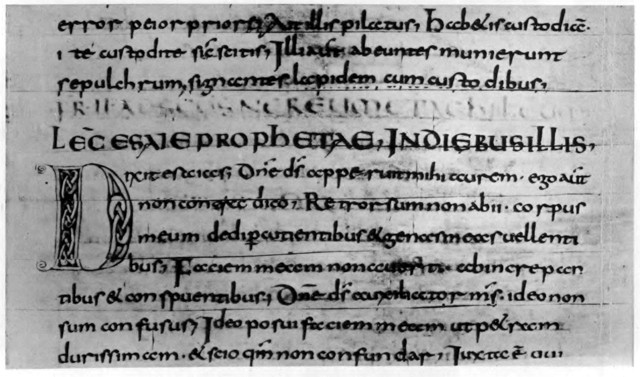 error peior priore; Ait illis pilatus; habetis custodiā
ite custodite sic̄ scitis; Illi aūt abeuntes munierunt
sepulchrum, signantes lapidem cum custodibus;
LEC̄ ESAIE PROPHETAE, IN DIEBUS ILLIS,
Dixit esaias; Dn̄e ds̄ apperuit mihi aurem · ego aūt
non dico; Retrorsum non abii · corpus
meum dedi p̱cutientibus & genas meas vellenti
bus; Faciem meam non averti ab increpan
tibus & conspuentibus; Dn̄e ds̄ auxiliator ms̄ · ideo non
sum confusus; Ideo posui faciem meam ut p&ram
durissimam · & scio qm̄ non confundar; Iuxta ē qui